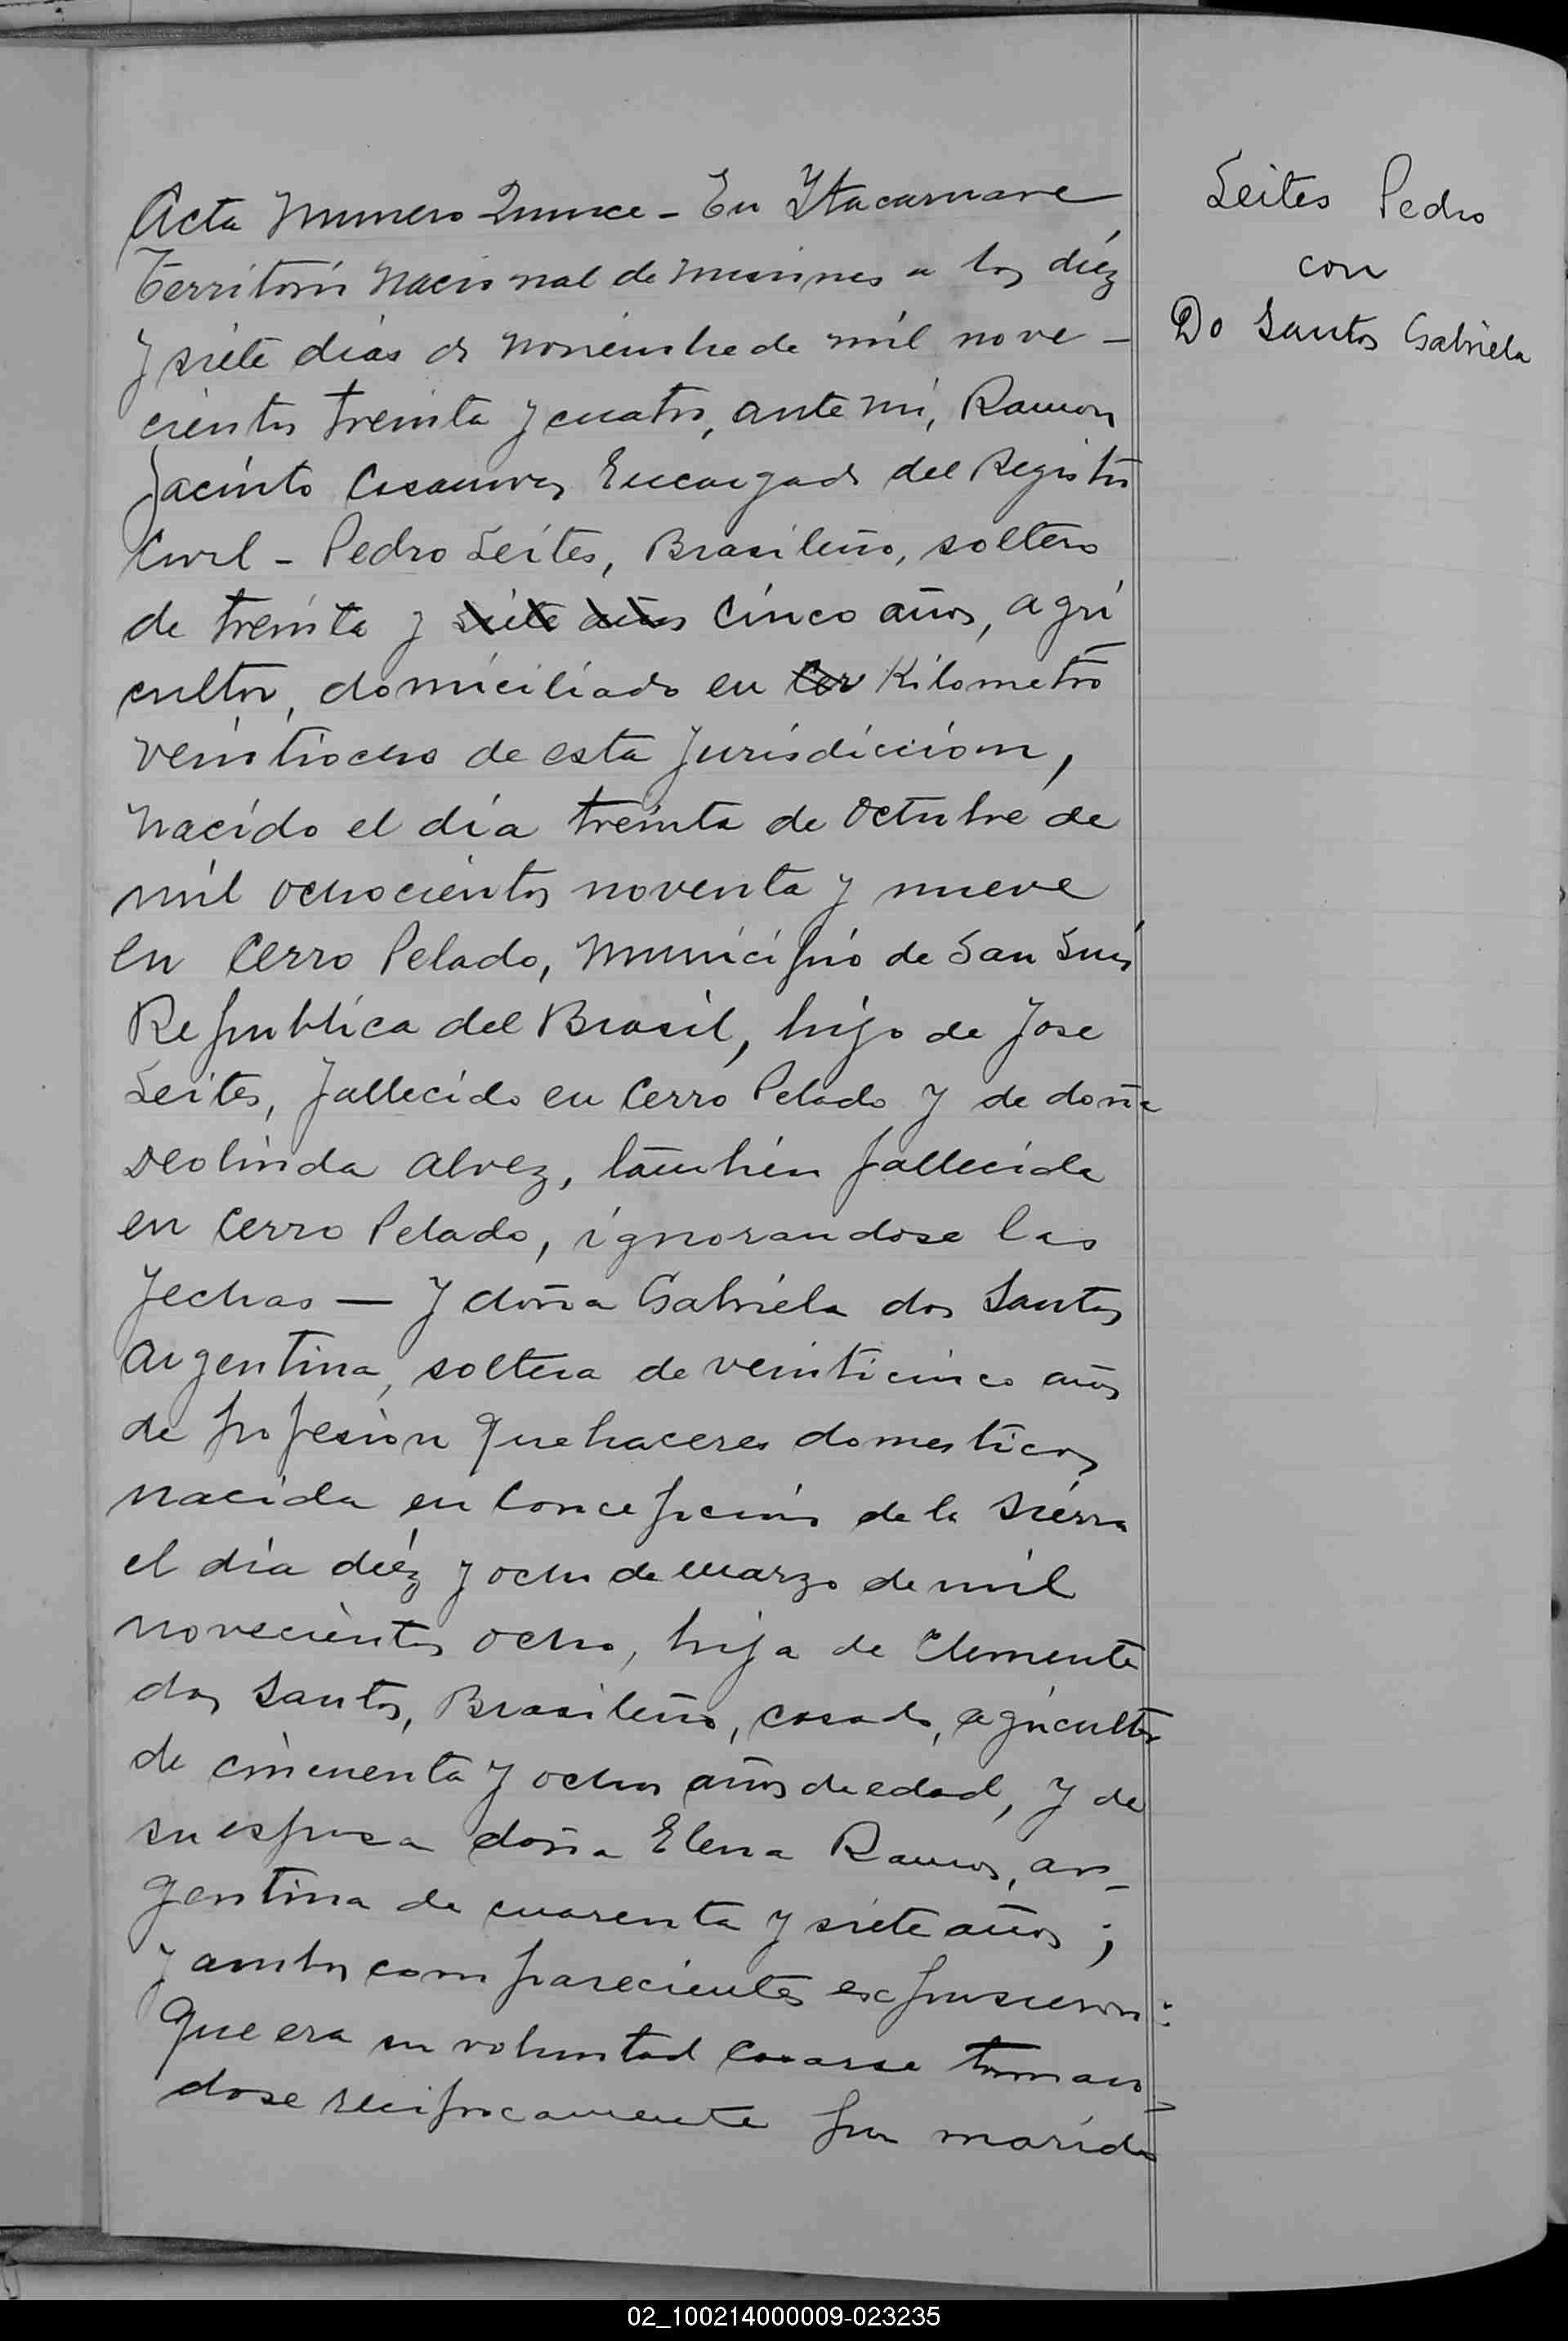 Acta Numero Quince - En Itacaruare
Territorio Nacional de Misiones a los diéz
y siete dias de Noviembre de mil nove-
cientos treinta y cuatro, ante mi, Ramon
Jacinto Casanova Encargado del Registro
Civil - Pedro Leites, Brasileño, soltero
de treinta y siete años cinco años, agri
cultor, domiciliado en Cer Kilometro
veintiocho de esta Jurisdiccion,
nacido el dia treinta de Octubre de
mil ochocientos noventa y nueve
en Cerro Pelado, Municipio de San Luis
Republica del Brasil, hijo de Jose
Leites, fallecido en Cerro Pelado y de doña
Deolinda Alvez, tambien fallecida
en Cerro Pelado, ignorandose las
fechas — y doña Gabriela dos Santos
Argentina, soltera de veinticinco años
de profesion quehaceres domesticos,
nacida en Concepcion de la Sierra
el dia diéz y ocho de Marzo de mil
novecientos ocho, hija de Clemente
dos Santos, Brasileño, casado, agricultor
de cincuenta y ocho años de edad, y de
su esposa doña Elena Ramos, ar-
gentina de cuarenta y siete años;
y ambos comparecientes expusieron:
que era su voluntad casarse toman-
dose reciprocamente por marido
Leites Pedro
con
Do Santos Gabriela
02_100214000009-023235